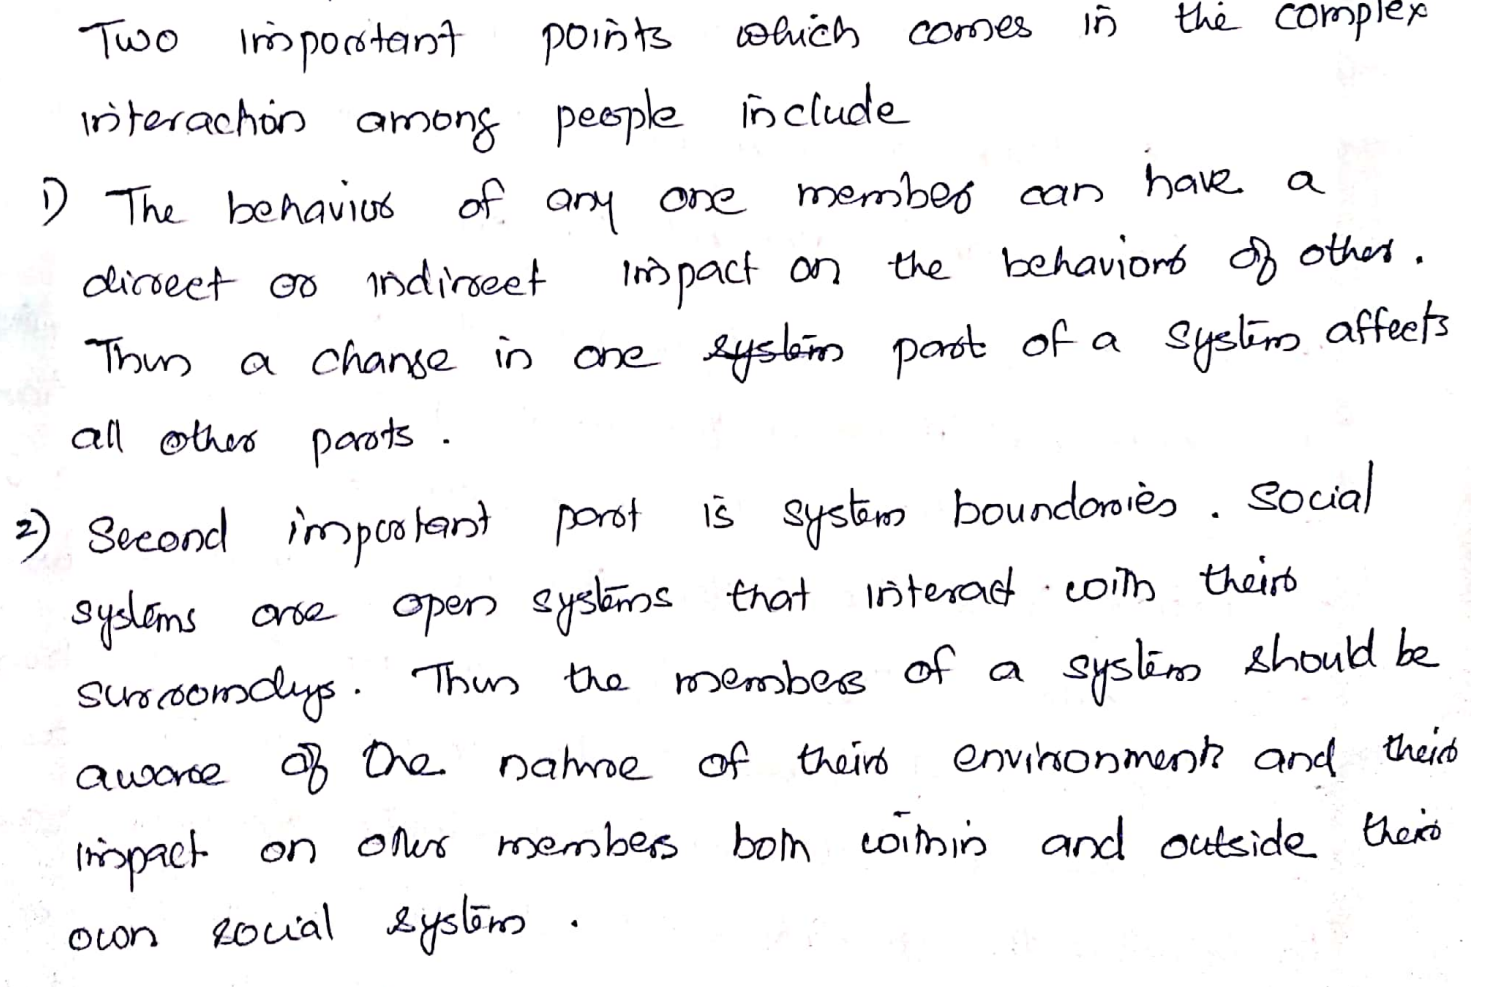 Two important points which comes in the complex
interaction among people include
1) The behavior of any one member can have a
direct or indirect impact on the behaviors of other.
Thus a change in one ~~system~~ part of a system affects
all other parts.
2) Second important part is system boundaries. Social
systems are open systems that interact with their
surroundings. Thus the members of a system should be
aware of the nature of their environment and their
impact on other members both within and outside their
own social system.